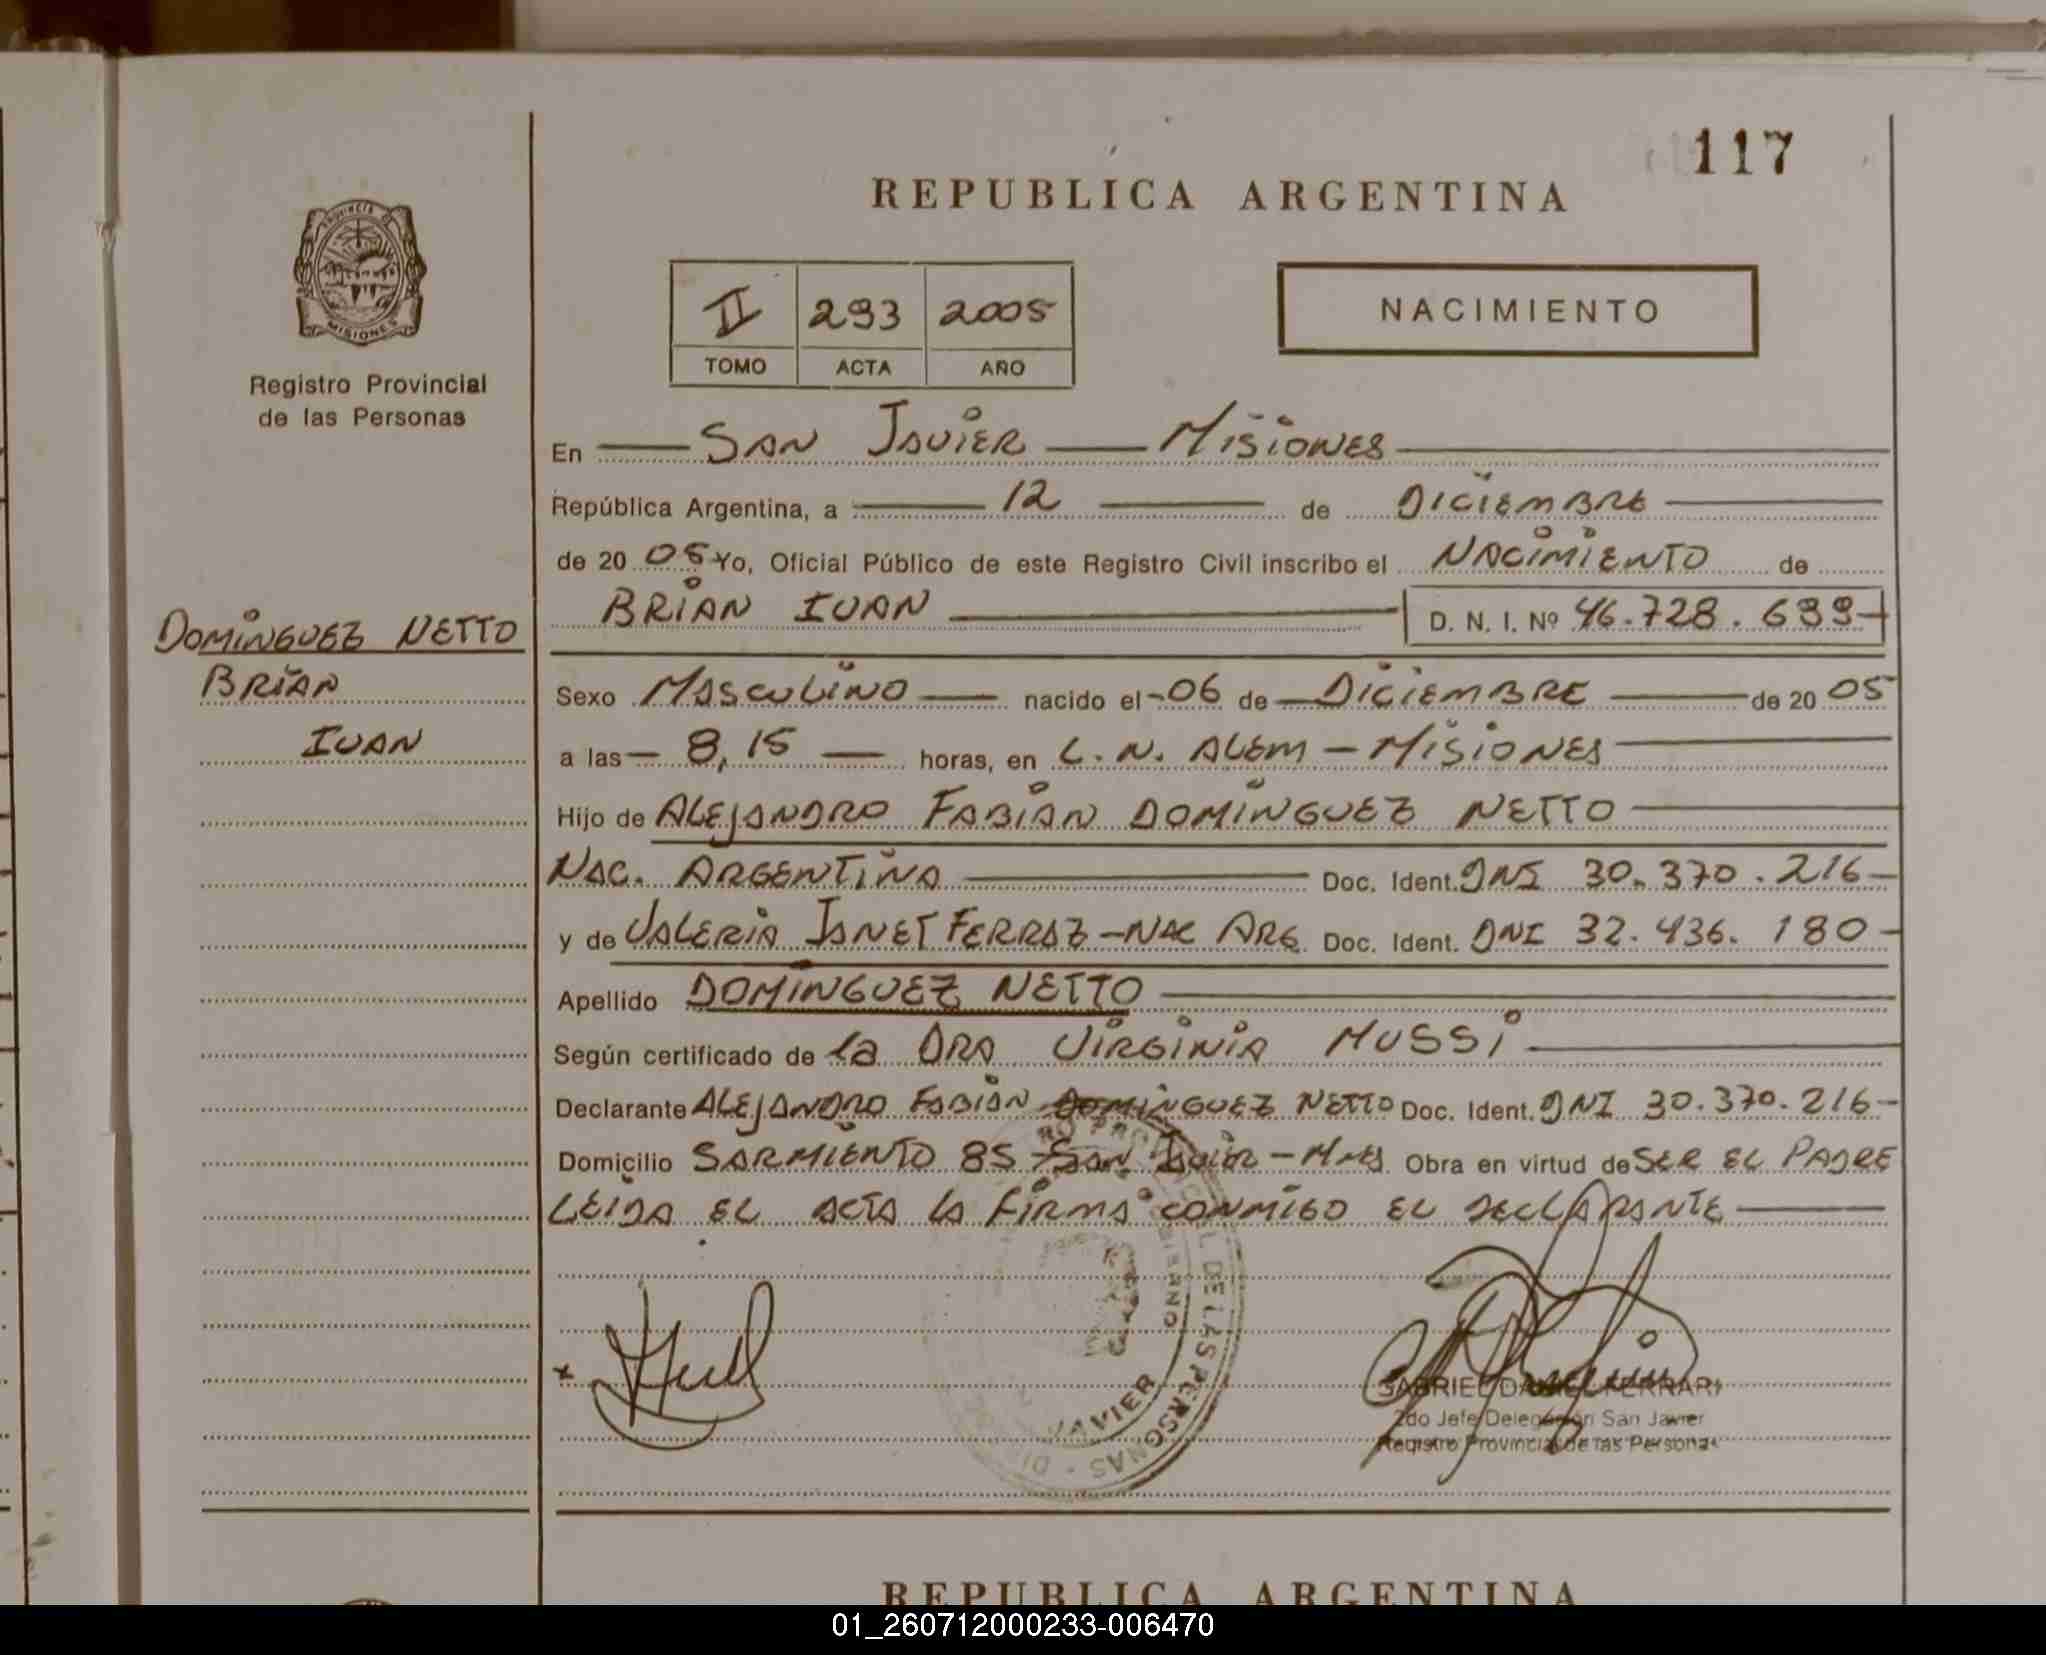 117
REPUBLICA ARGENTINA
PROVINCIA DE
MISIONES
Registro Provincial
de las Personas
II 293 2005
TOMO ACTA AÑO
NACIMIENTO
En SAN JAVIER MISIONES
República Argentina, a 12 de DICIEMBRE
de 20 05 Yo, Oficial Público de este Registro Civil inscribo el NACIMIENTO de
BRIAN IVAN D. N. I. Nº 46.728.699
DOMINGUEZ NETTO
BRIAN
IVAN
Sexo MASCULINO nacido el 06 de DICIEMBRE de 20 05
a las 8,15 horas, en L. N. ALEM - MISIONES
Hijo de ALEJANDRO FABIAN DOMINGUEZ NETTO
NAC. ARGENTINA Doc. Ident. DNI 30.370.216
y de VALERIA JANET FERRAZ - NAC ARG. Doc. Ident. DNI 32.436.180
Apellido DOMINGUEZ NETTO
Según certificado de la DRA VIRGINIA MUSSI
Declarante ALEJANDRO FABIAN DOMINGUEZ NETTO Doc. Ident. DNI 30.370.216
Domicilio SARMIENTO 85 - SAN JAVIER - Mnes. Obra en virtud de SER EL PADRE
LEIDA EL ACTA LA FIRMA CONMIGO EL DECLARANTE
DE LAS PERSONAS
JAVIER
GABRIEL DANIEL FERRARI
2do Jefe Delegación San Javier
Registro Provincial de las Personas
REPUBLICA ARGENTINA
01_260712000233-006470